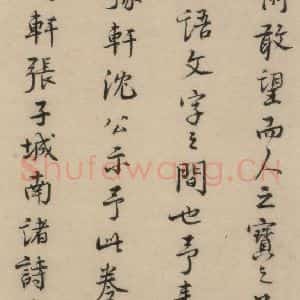 敢望而人之寶之
語文字之間也予
豫軒沈公示予此卷
軒張子城南諸詩
Shufawang.CN